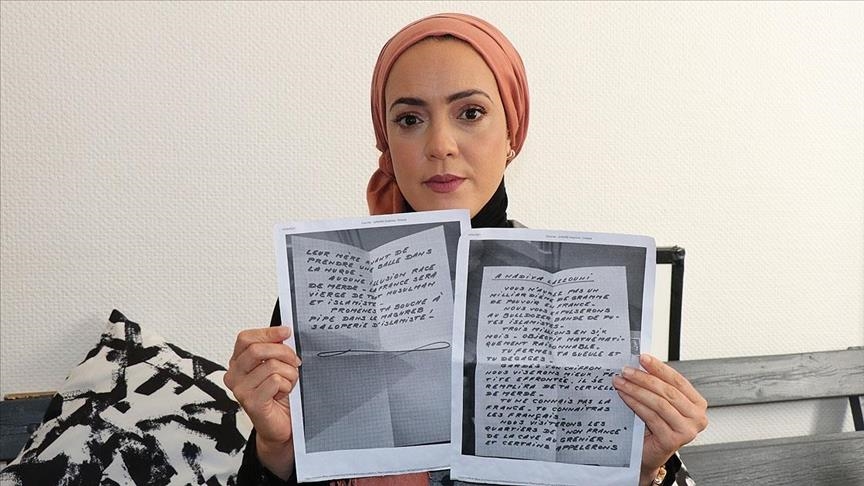 LEUR MÈRE AVANT DE
PRENDRE UNE BALLE DANS
LA NUQUE -
AUCUNE ILLUSION RACE
DE MERDE - LA FRANCE SERA
VIERGE DE TOUT MUSULMAN
ET ISLAMISTE -
PROMENES TA BOUCHE À
PIPE DANS LE MAGHREB,
SALOPERIE D'ISLAMISTE -
A NADIYA LAZZOUNI
VOUS N'AUREZ PAS UN
MILLIARDIÈME DE GRAMME
DE POUVOIR EN FRANCE -
NOUS VOUS EXPULSERONS
AU BULLDOZER BANDE DE PU-
TES ISLAMISTES -
TROIS MILLIONS EN SIX
MOIS - OBJECTIF MATHÉMATI-
QUEMENT RAISONNABLE.
TU FERMES TA GUEULE ET
TU DÉGAGES -
GARDES TON CHIFFON -
NOUS VISERONS MIEUX, PE-
TITE EFFRONTÉE, IL SE
REMPLIRA DE TA CERVELLE
DE MERDE -
TU NE CONNAIS PAS LA
FRANCE - TU CONNAITRAS
LES FRANÇAIS -
NOUS VISITERONS LES
QUARTIERS DE "NON FRANCE"
DE LA CAVE AU GRENIER -
ET CERTAINS APPELERONS